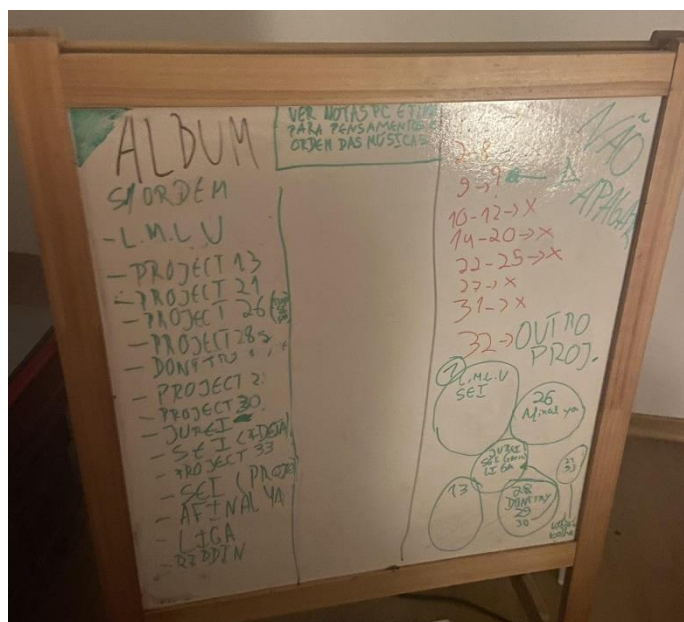 ALBUM
S/ORDEM
- L.M.L.U
- PROJECT 13
- PROJECT 21
- PROJECT 26
- PROJECT 28
- PROJECT 2
- PROJECT 30
- JUREI
- SEI
- PROJECT 33
- SEI (PROJE
- AFINAL YA
- LIGA
- RIDDIN
VER NOTAS PC E
PARA PENSAMENTOS E
ORDEM DAS MÚSICAS
NÃO
APAGAR
9→?
10-12→X
14-20→X
22-25→X
27→X
31→X
32→OUTRO
PROJ.
L.M.L.U
SEI
26
Afinal ya
JUREI
SEI
LIGA
13
28
29
30
21
33